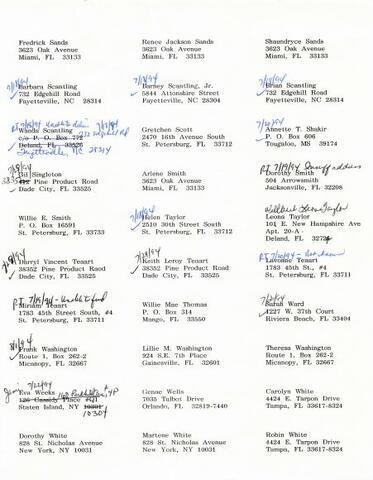 Fredrick Sands
3623 Oak Avenue
Miami, FL 33133
Renee Jackson Sands
3623 Oak Avenue
Miami, FL 33133
Shaundryce Sands
3623 Oak Avenue
Miami, FL 33133
7/18/94
Barbara Scantling
732 Edgehill Road
Fayetteville, NC 28314
7/18/94
Barney Scantling, Jr.
5844 Attonshire Street
Fayetteville, NC 28304
7/18/94
Brian Scantling
732 Edgehill Road
Fayetteville, NC 28314
Wanda Scantling
c/o P. O. Box 772
732 Edgehill Rd
Deland, FL 33526
Fayetteville, NC 28314
Gretchen Scott
2470 16th Avenue South
St. Petersburg, FL 33712
7/20/94
Annette T. Shakir
P. O. Box 606
Tougaloo, MS 39174
Singleton
Pine Product Road
Dade City, FL 33525
Arlene Smith
3623 Oak Avenue
Miami, FL 33133
RT 7/19/94
Dorothy Smith
504 Arrowsmith
Jacksonville, FL 32208
Willie E. Smith
P. O. Box 16591
St. Petersburg, FL 33733
Helen Taylor
2510 30th Street South
St. Petersburg, FL 33712
Leona Taylor
101 E. New Hampshire Ave
Apt. 20-A
Deland, FL 32724
Vincent Tenart
38352 Pine Product Raod
Dade City, FL 33525
Keith Leroy Tenart
38352 Pine Product Road
Dade City, FL 33525
Lavonne Tenart
1783 45th St., #4
St. Petersburg, FL 33711
RT 7/19/94 - Unable to fwd
Miriam Tenart
1783 45th Street South, #4
St. Petersburg, FL 33711
Willie Mae Thomas
P. O. Box 314
Mango, FL 33550
Sarah Ward
1227 W. 37th Court
Riviera Beach, FL 33404
Frank Washington
Route 1, Box 262-2
Micanopy, FL 32667
Lillie M. Washington
924 S.E. 7th Place
Gainesville, FL 32601
Theresa Washington
Route 1, Box 262-2
Micanopy, FL 32667
7/22/94
Eva Weeks
126 Cassidy Place
Staten Island, NY 10301
10304
Genae Wells
7035 Talbot Drive
Orlando, FL 32819-7440
Carolyn White
4424 E. Tarpon Drive
Tampa, FL 33617-8324
Dorothy White
828 St. Nicholas Avenue
New York, NY 10031
Martene White
828 St. Nicholas Avenue
New York, NY 10031
Robin White
4424 E. Tarpon Drive
Tampa, FL 33617-8324